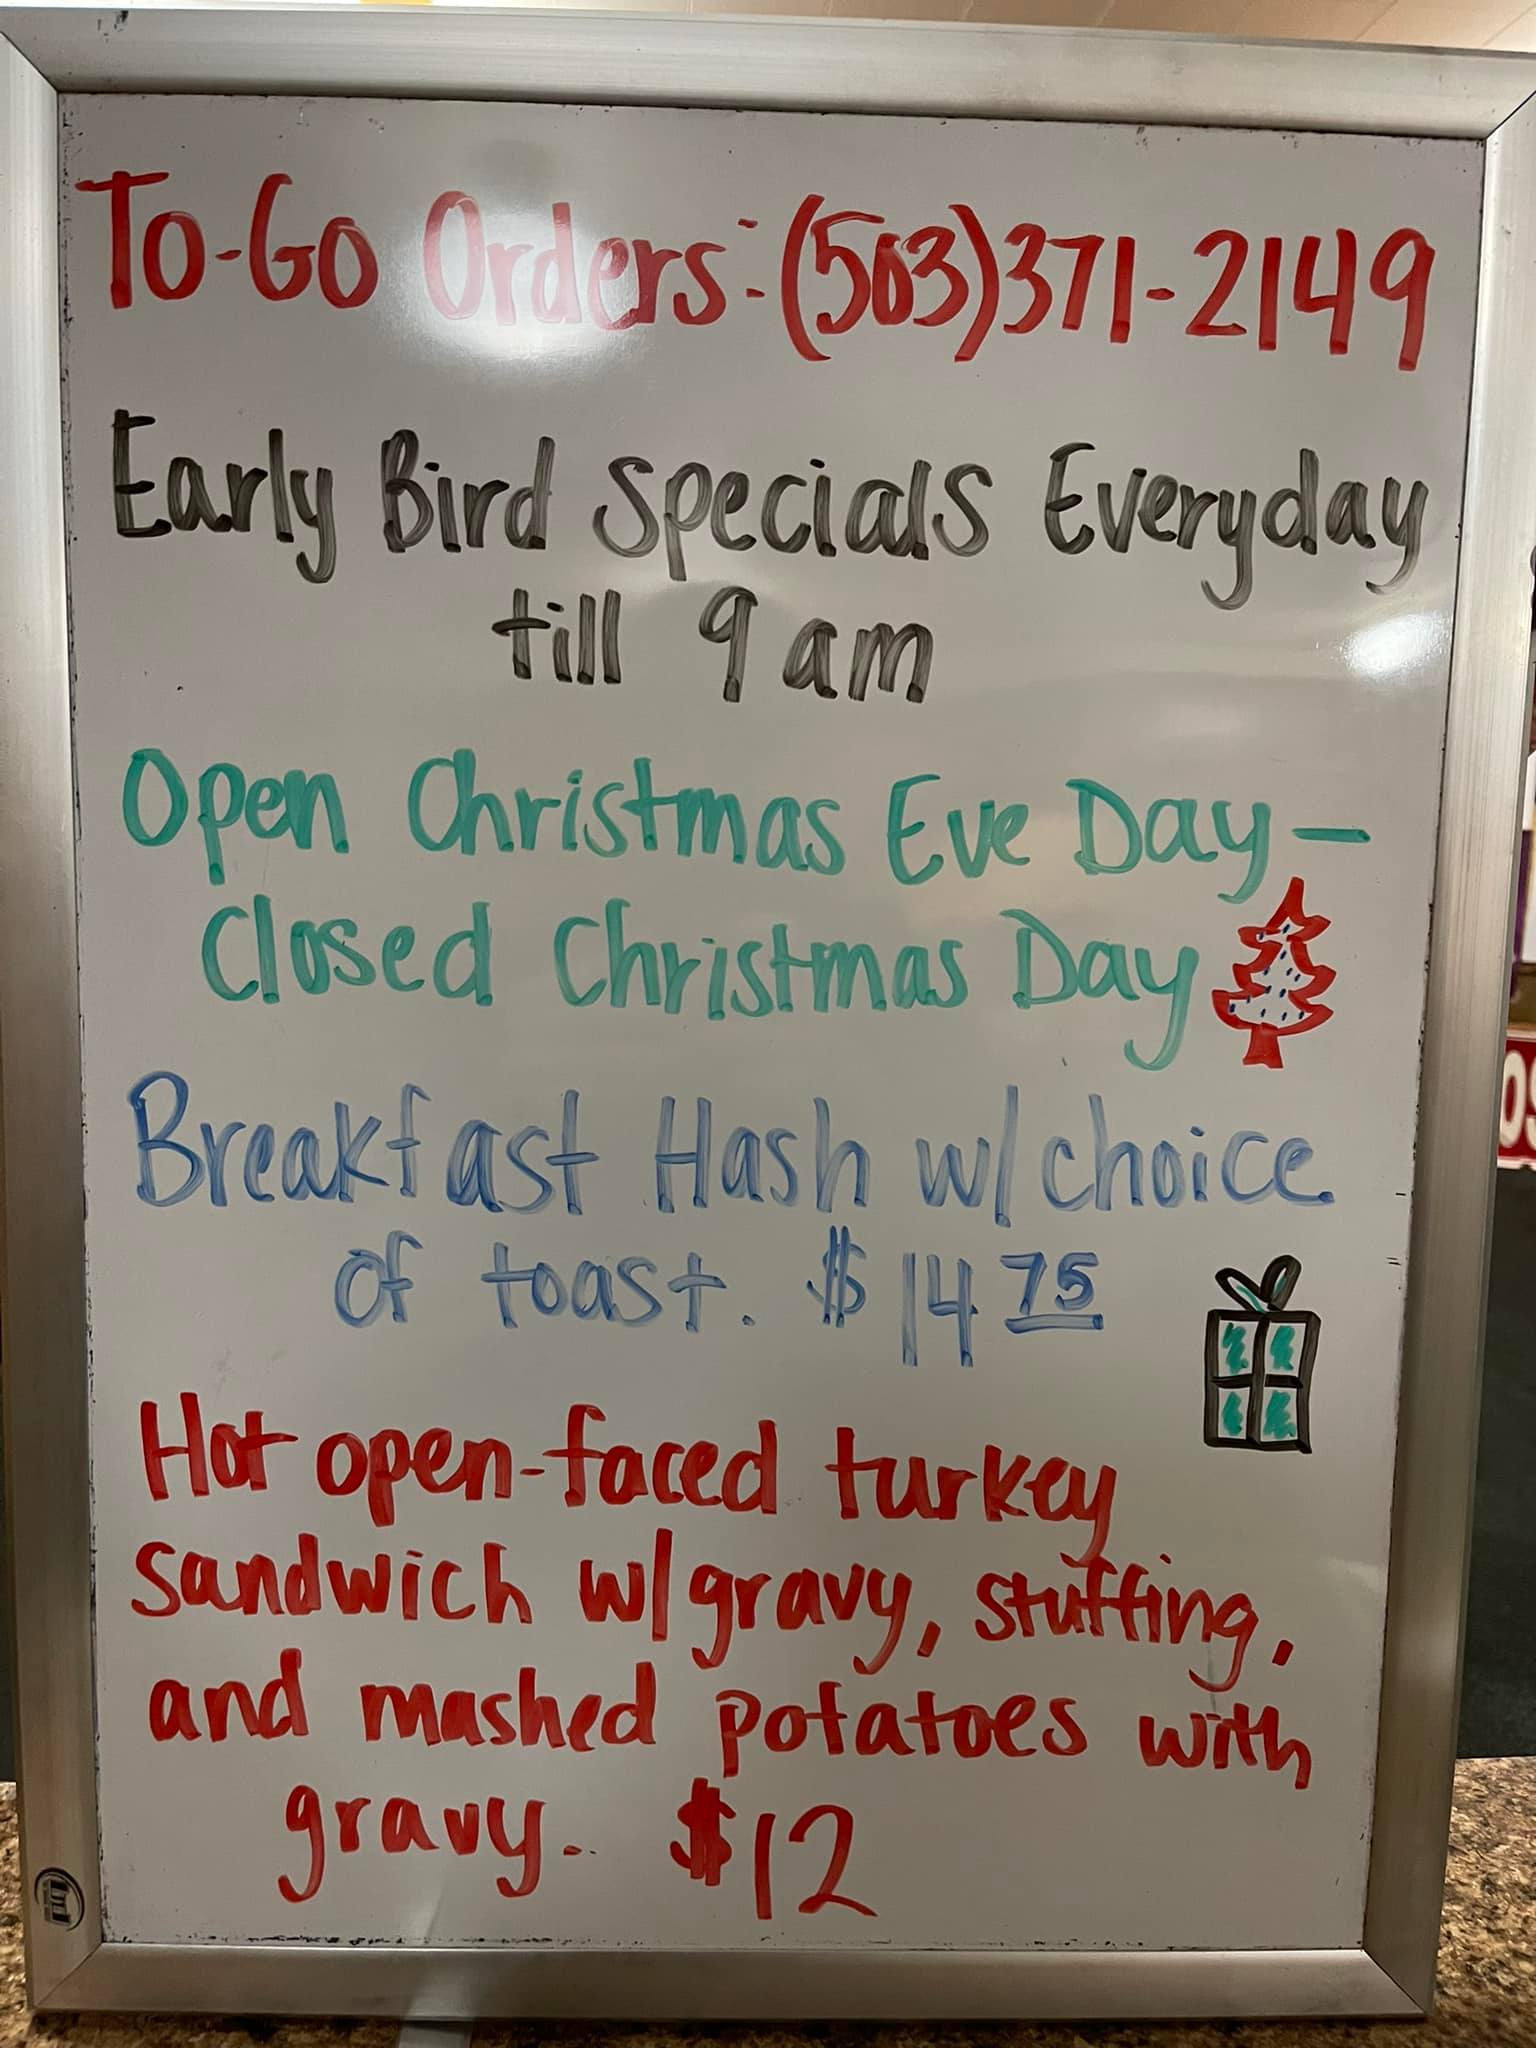 To-Go Orders: (503)371-2149
Early Bird Specials Everyday
till 9am
Open Christmas Eve Day—
Closed Christmas Day
Breakfast Hash w/choice
of toast. $14 75
Hot open-faced turkey
sandwich w/gravy, stuffing,
and mashed potatoes with
gravy. $12